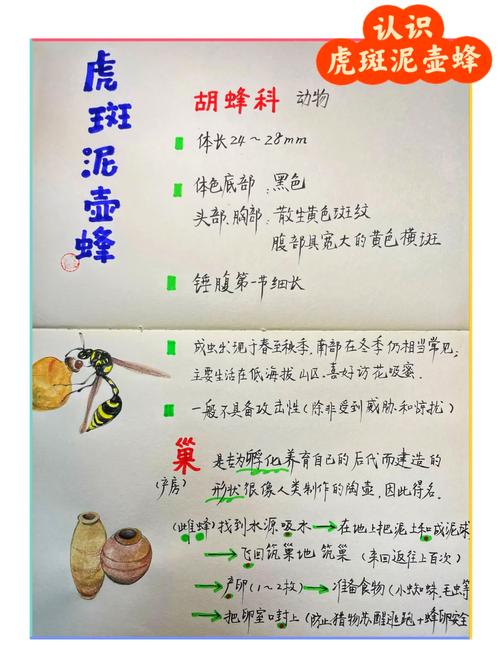 认识
虎斑泥壶蜂
虎斑泥壶蜂
胡蜂科 动物
体长24～28mm
体色底部:黑色
头部、胸部:散生黄色斑纹
腹部具宽大的黄色横斑
锤腹第一节细长
成虫出现于春至秋季,南部在冬季仍相当常见;
主要生活在低海拔山区、喜好访花吸蜜.
一般不具备攻击性(除非受到威胁和惊扰)
巢 是专为孵化养育自己的后代而建造的
(产房) 形状很像人类制作的陶壶,因此得名.
(雌蜂)找到水源吸水→在地上把泥土和成泥球
→飞回筑巢地 筑巢 (来回返往上百次)
→产卵(1～2枚)→准备食物(小蜘蛛、毛虫等
→把卵室口封上(防止猎物苏醒逃跑+蜂卵安全